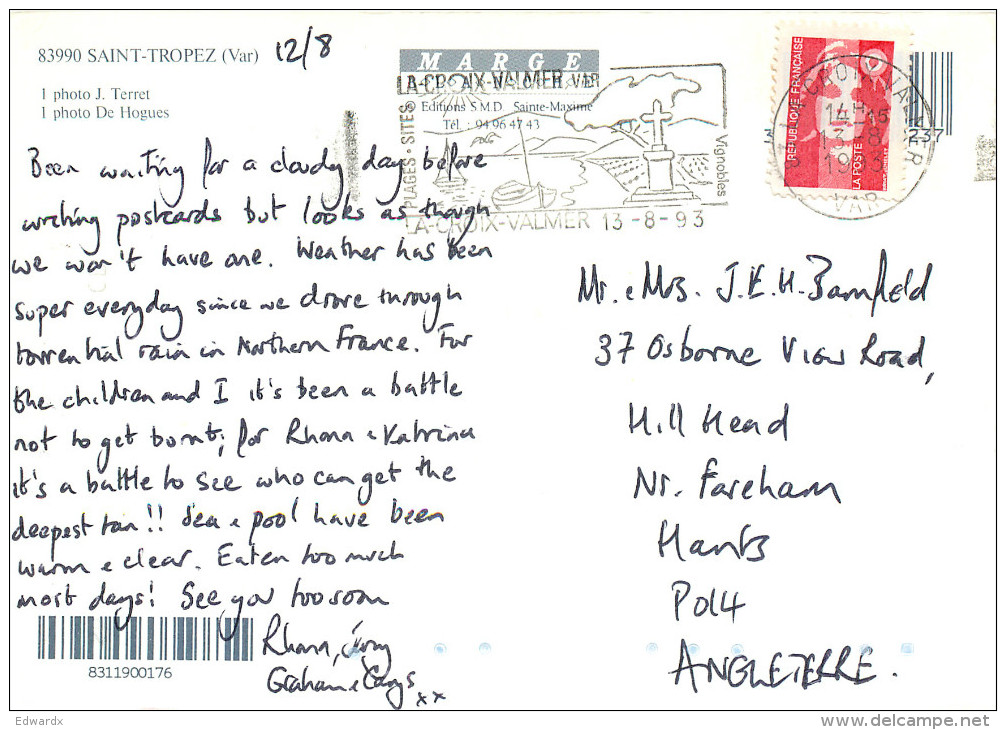 83990 SAINT-TROPEZ (Var) 12/8
1 photo J. Terret
1 photo De Hogues
MARGE
Editions S.M.D. Sainte-Maxime
Tél. : 94 96 47 43
LA-CROIX-VALMER VAR
PLAGES - SITES
Vignobles
LA-CROIX-VALMER 13-8-93
REPUBLIQUE FRANÇAISE
LA POSTE
14H15
13-8
1993
VAR
237
Been waiting for a cloudy day before
writing postcards but looks as though
we won't have one. Weather has been
super everyday since we drove through
torrential rain in Northern France. For
the children and I it's been a battle
not to get burnt; for Rhona & Katrina
it's a battle to see who can get the
deepest tan!! Sea & pool have been
warm & clear. Eaten too much
most days! See you too soon
Rhona,
Graham & xx
Mr. & Mrs. J.E.H. Bamfield
37 Osborne View Road,
Hill Head
Nr. Fareham
Hants
PO14
ANGLETERRE.
8311900176
Edwardx
delcampe.net